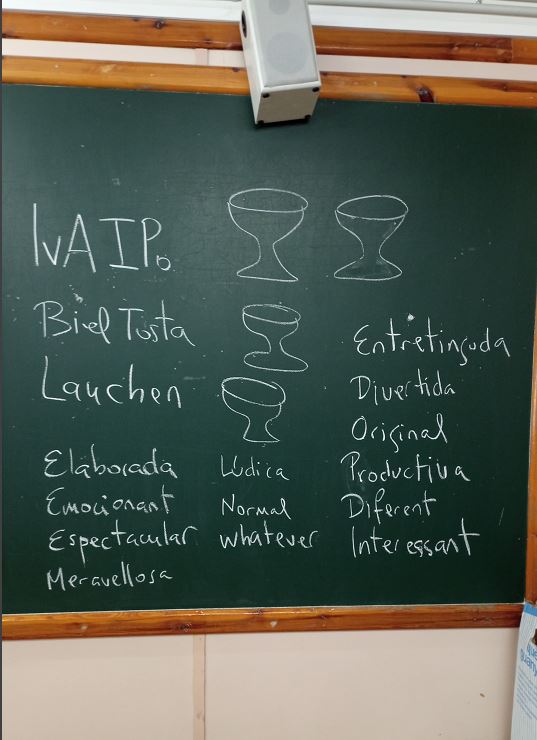 IvAIPo
Biel Tosta
Lauchen
Entretinguda
Divertida
Original
Elaborada Lúdica Productiva
Emocionant Normal Diferent
Espectacular whatever Interessant
Meravellosa